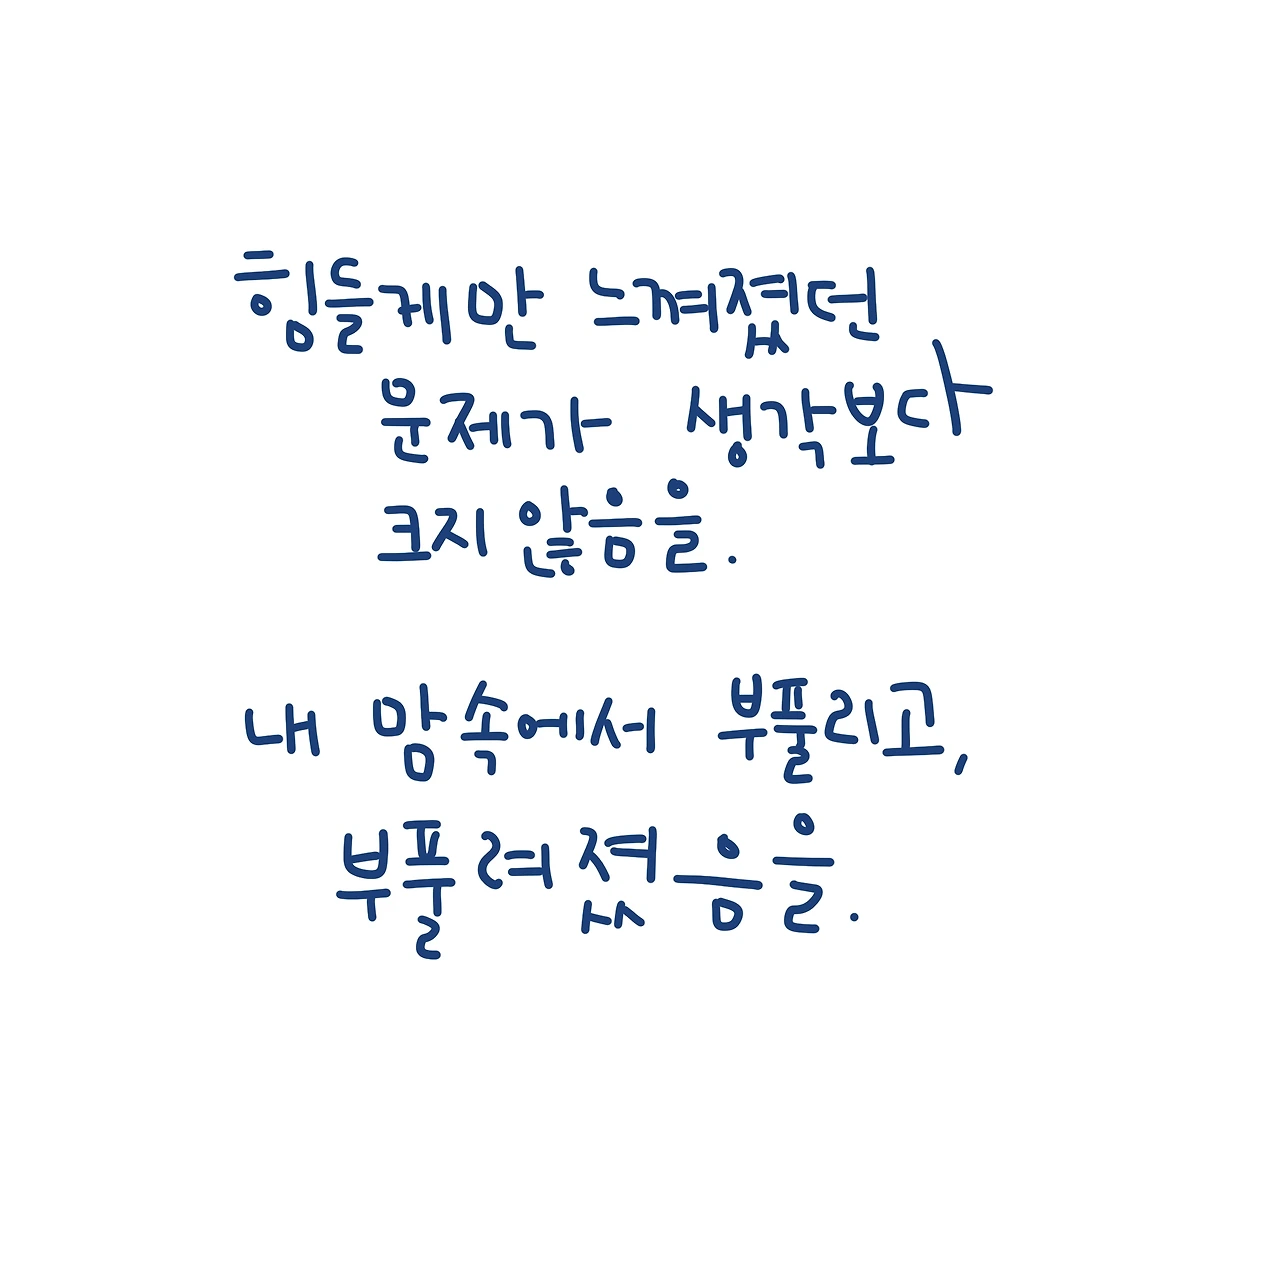 힘들게만 느껴졌던
문제가 생각보다
크지 않음을.
내 맘속에서 부풀리고,
부풀려졌음을.